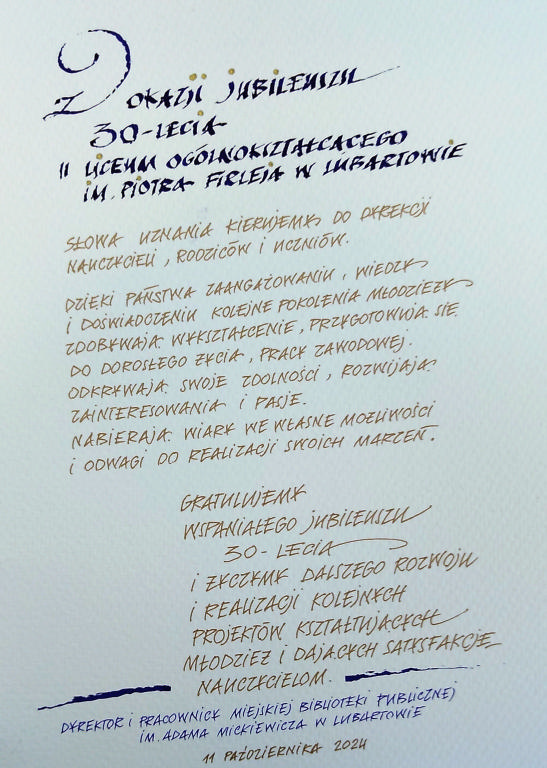 Z OKAZJI JUBILEUSZU
30-LECIA
II LICEUM OGÓLNOKSZTAŁCĄCEGO
IM. PIOTRA FIRLEJA W LUBARTOWIE
SŁOWA UZNANIA KIERUJEMY DO DYREKCJI
NAUCZYCIELI, RODZICÓW I UCZNIÓW.
DZIĘKI PAŃSTWA ZAANGAŻOWANIU, WIEDZY
I DOŚWIADCZENIU KOLEJNE POKOLENIA MŁODZIEŻY
ZDOBYWAJĄ WYKSZTAŁCENIE, PRZYGOTOWUJĄ SIĘ
DO DOROSŁEGO ŻYCIA, PRACY ZAWODOWEJ.
ODKRYWAJĄ SWOJE ZDOLNOŚCI, ROZWIJAJĄ
ZAINTERESOWANIA I PASJE.
NABIERAJĄ WIARY WE WŁASNE MOŻLIWOŚCI
I ODWAGI DO REALIZACJI SWOICH MARZEŃ.
GRATULUJEMY
WSPANIAŁEGO JUBILEUSZU
30-LECIA
I ŻYCZYMY DALSZEGO ROZWOJU
I REALIZACJI KOLEJNYCH
PROJEKTÓW KSZTAŁTUJĄCYCH
MŁODZIEŻ I DAJĄCYCH SATYSFAKCJĘ
NAUCZYCIELOM.
DYREKTOR I PRACOWNICY MIEJSKIEJ BIBLIOTEKI PUBLICZNEJ
IM. ADAMA MICKIEWICZA W LUBARTOWIE
11 PAŹDZIERNIKA 2024